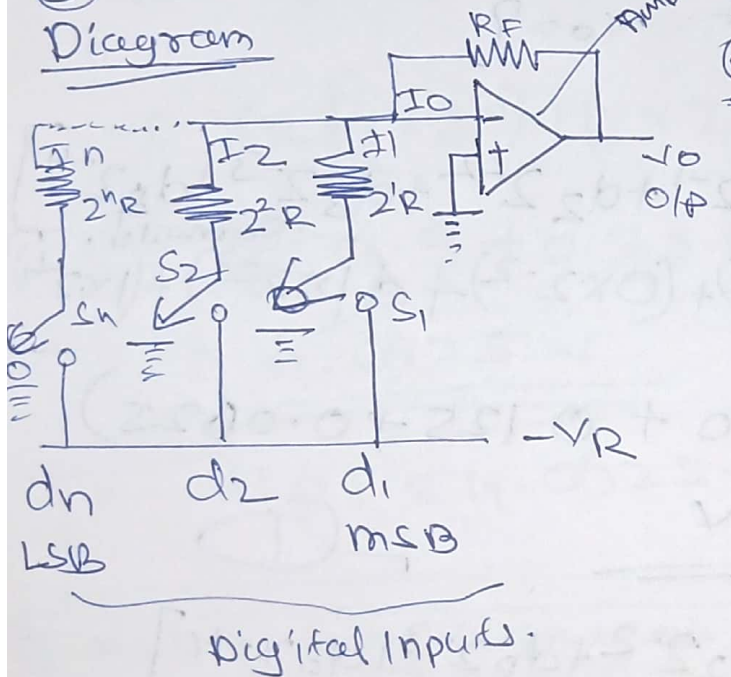 Diagram
RF
I0
In
I2
I1
2ⁿR
2²R
2¹R
- 
+
V0
O/P
S2
Sn
S1
-VR
dn
d2
d1
LSB
MSB
Digital Inputs.